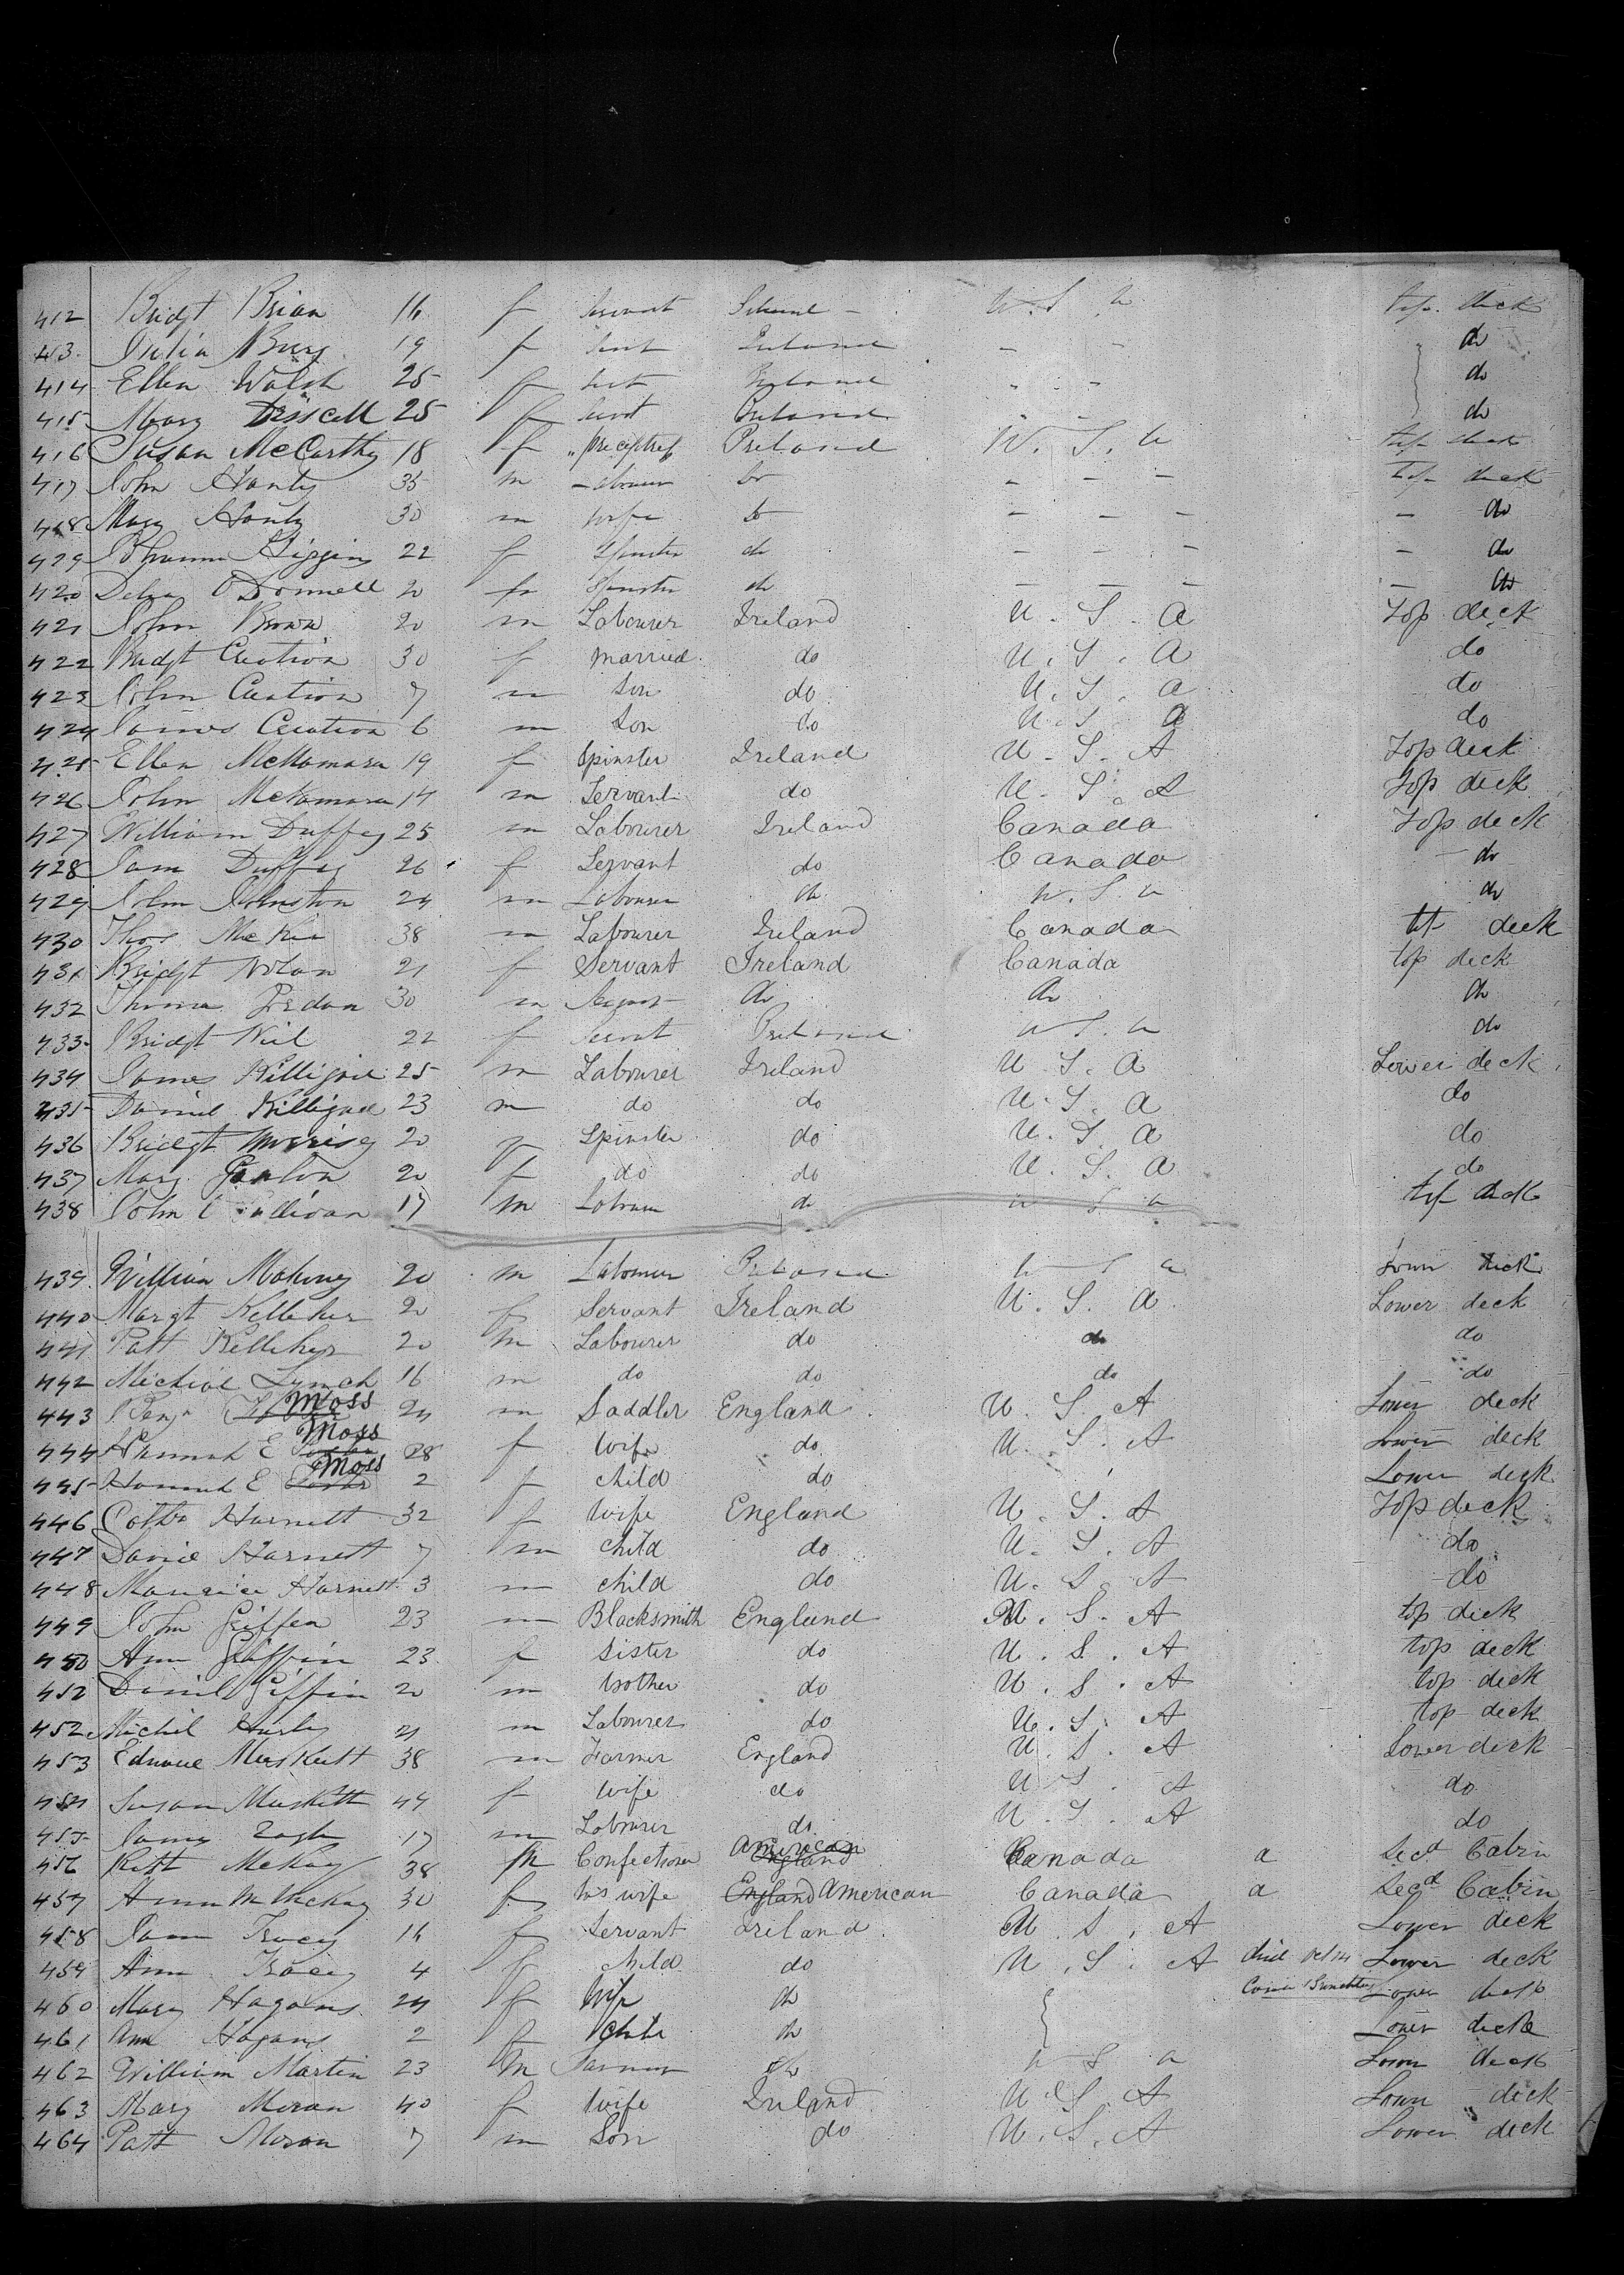 412 Bridgt Brian 16 f Servant Ireland - U.S.A top deck
413 Julia 19 f Servt Ireland - - do
414 Ellen Walsh 25 f Servt Ireland - - do
415 Mary Driscoll 25 f Servt Ireland - - do
416 Susan McCarthy 18 f Ireland U.S.A top deck
417 John Hanly 35 m Labourer do - - - top deck
418 Mary Hanly 30 m wife do - - - - do
419 Johanna Higgins 22 f Spinster do - - - - do
420 O'Donnell 20 f Spinster do - - - - do
421 John Brown 20 m Labourer Ireland U.S.A Top deck
422 Bridgt 30 f married do U.S.A do
423 John 7 m Son do U.S.A do
424 James 6 m Son do U.S.A do
425 Ellen McNamara 19 f Spinster Ireland U.S.A Top deck
426 John McNamara 14 m Servant do U.S.A Top deck
427 William Duffey 25 m Labourer Ireland Canada Top deck
428 Duffey 26 f Servant do Canada - do
429 John Johnston 24 m Labourer do U.S.A do
430 Thos 38 m Labourer Ireland Canada top deck
431 Bridgt Nolan 21 f Servant Ireland Canada top deck
432 30 m do do do
433 Bridgt Neil 22 f Servt Ireland U.S.A do
434 James 25 m Labourer Ireland U.S.A Lower deck
435 Daniel 23 m do do U.S.A do
436 Bridgt 20 f Spinster do U.S.A do
437 Mary 20 f do do U.S.A do
438 John 17 m Labourer do U S A top deck
439 William Mahony 20 m Labourer Ireland U S A Lower deck
440 Margt Kelleher 20 f Servant Ireland U.S.A Lower deck
441 Patt Kelleher 20 m Labourer do do do
442 Michael Lynch 16 m do do do do
443 Benjn Moss 24 m Saddler England U.S.A Lower deck
444 Hannah E Moss 28 f Wife do U.S.A Lower deck
445 Hannah E Moss 2 f child do Lower deck
446 Harnett 32 f Wife England U.S.A Top deck
447 David Harnett 7 m child do U.S.A do
448 Maurice Harnett 3 m child do U.S.A do
449 John Griffen 23 m Blacksmith England U.S.A top deck
450 Ann Griffin 23 f Sister do U.S.A top deck
452 Daniel Griffin 20 m brother do U.S.A top deck
452 Michil Hurly 21 m Labourer do U.S.A top deck
453 38 m Farmer England U.S.A Lower deck
454 Susan 44 f Wife do U S A do
455 17 m Labourer do U.S.A do
456 McKay 38 m Confectioner England American Canada a Secd Cabin
457 30 f his wife England American Canada a Secd Cabin
458 Tracey 16 f Servant Ireland U.S.A Lower deck
459 Ann Tracey 4 f child do U.S.A died Lower deck
460 Mary Hagans 24 f Wife do Lower deck
461 Ann Hagans 2 f child do Lower deck
462 William Martin 23 m Farmer do U S A Lower deck
463 Mary Moran 40 f Wife Ireland U.S.A Lower deck
464 Patt Moran 7 m Son do U.S.A Lower deck